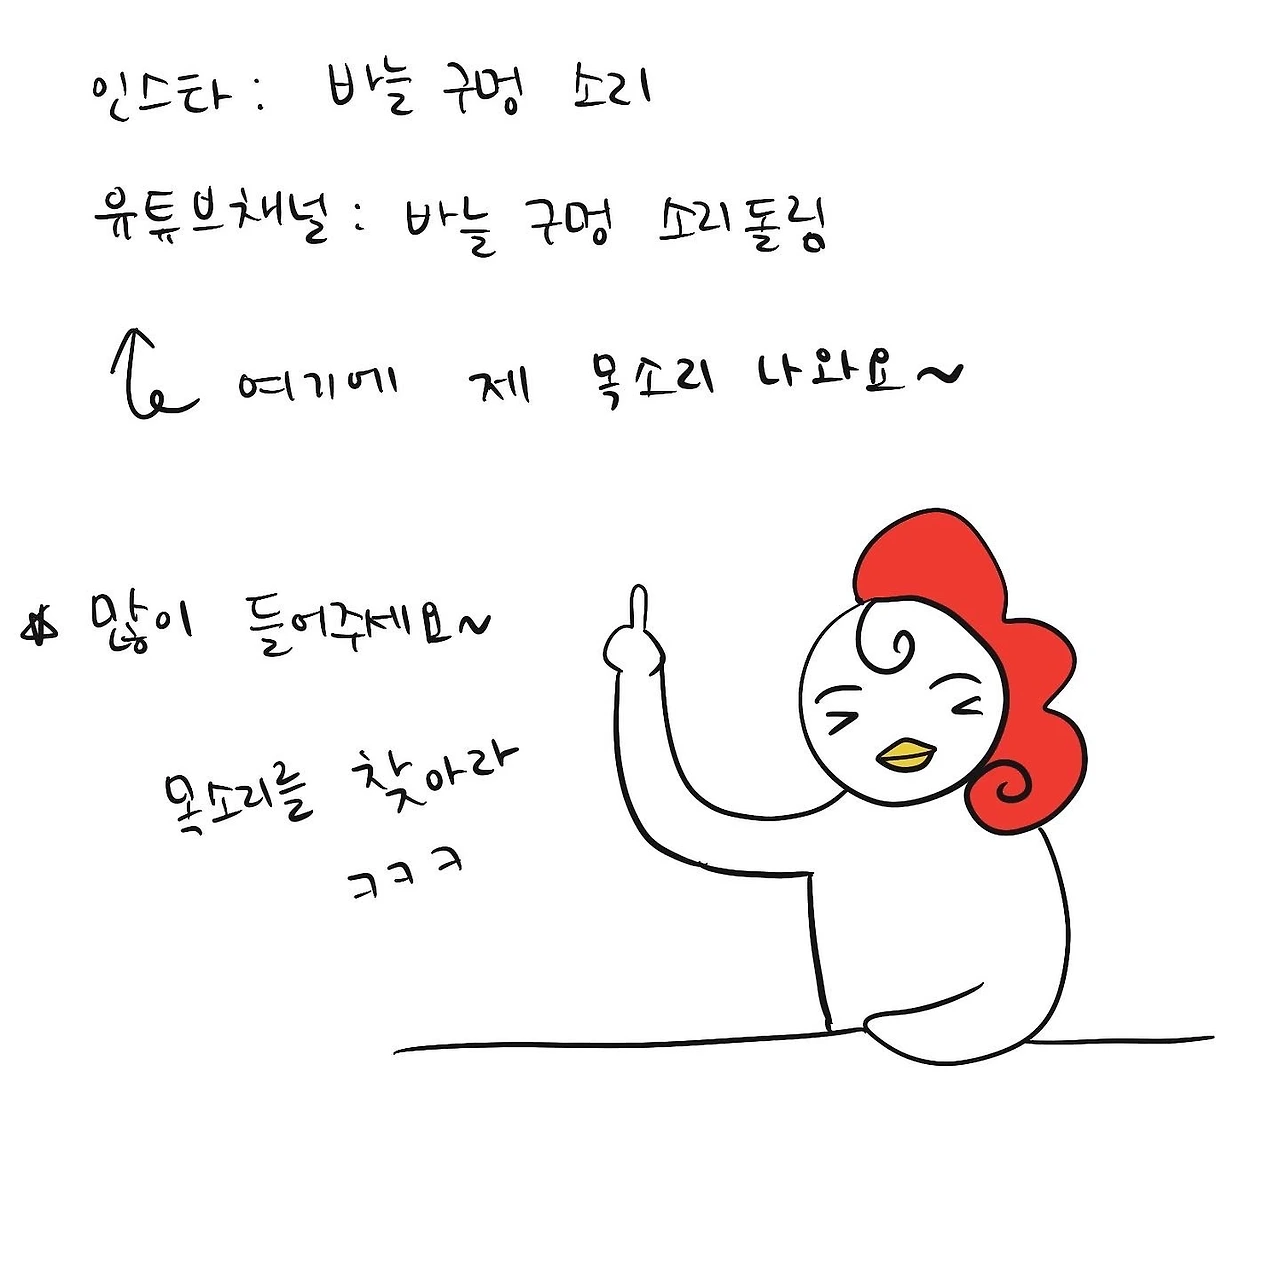 인스타 : 바늘 구멍 소리
유튜브채널 : 바늘 구멍 소리돌링
여기에 제 목소리 나와요~
많이 들어주세요~
목소리를 찾아라
ㅋㅋㅋ